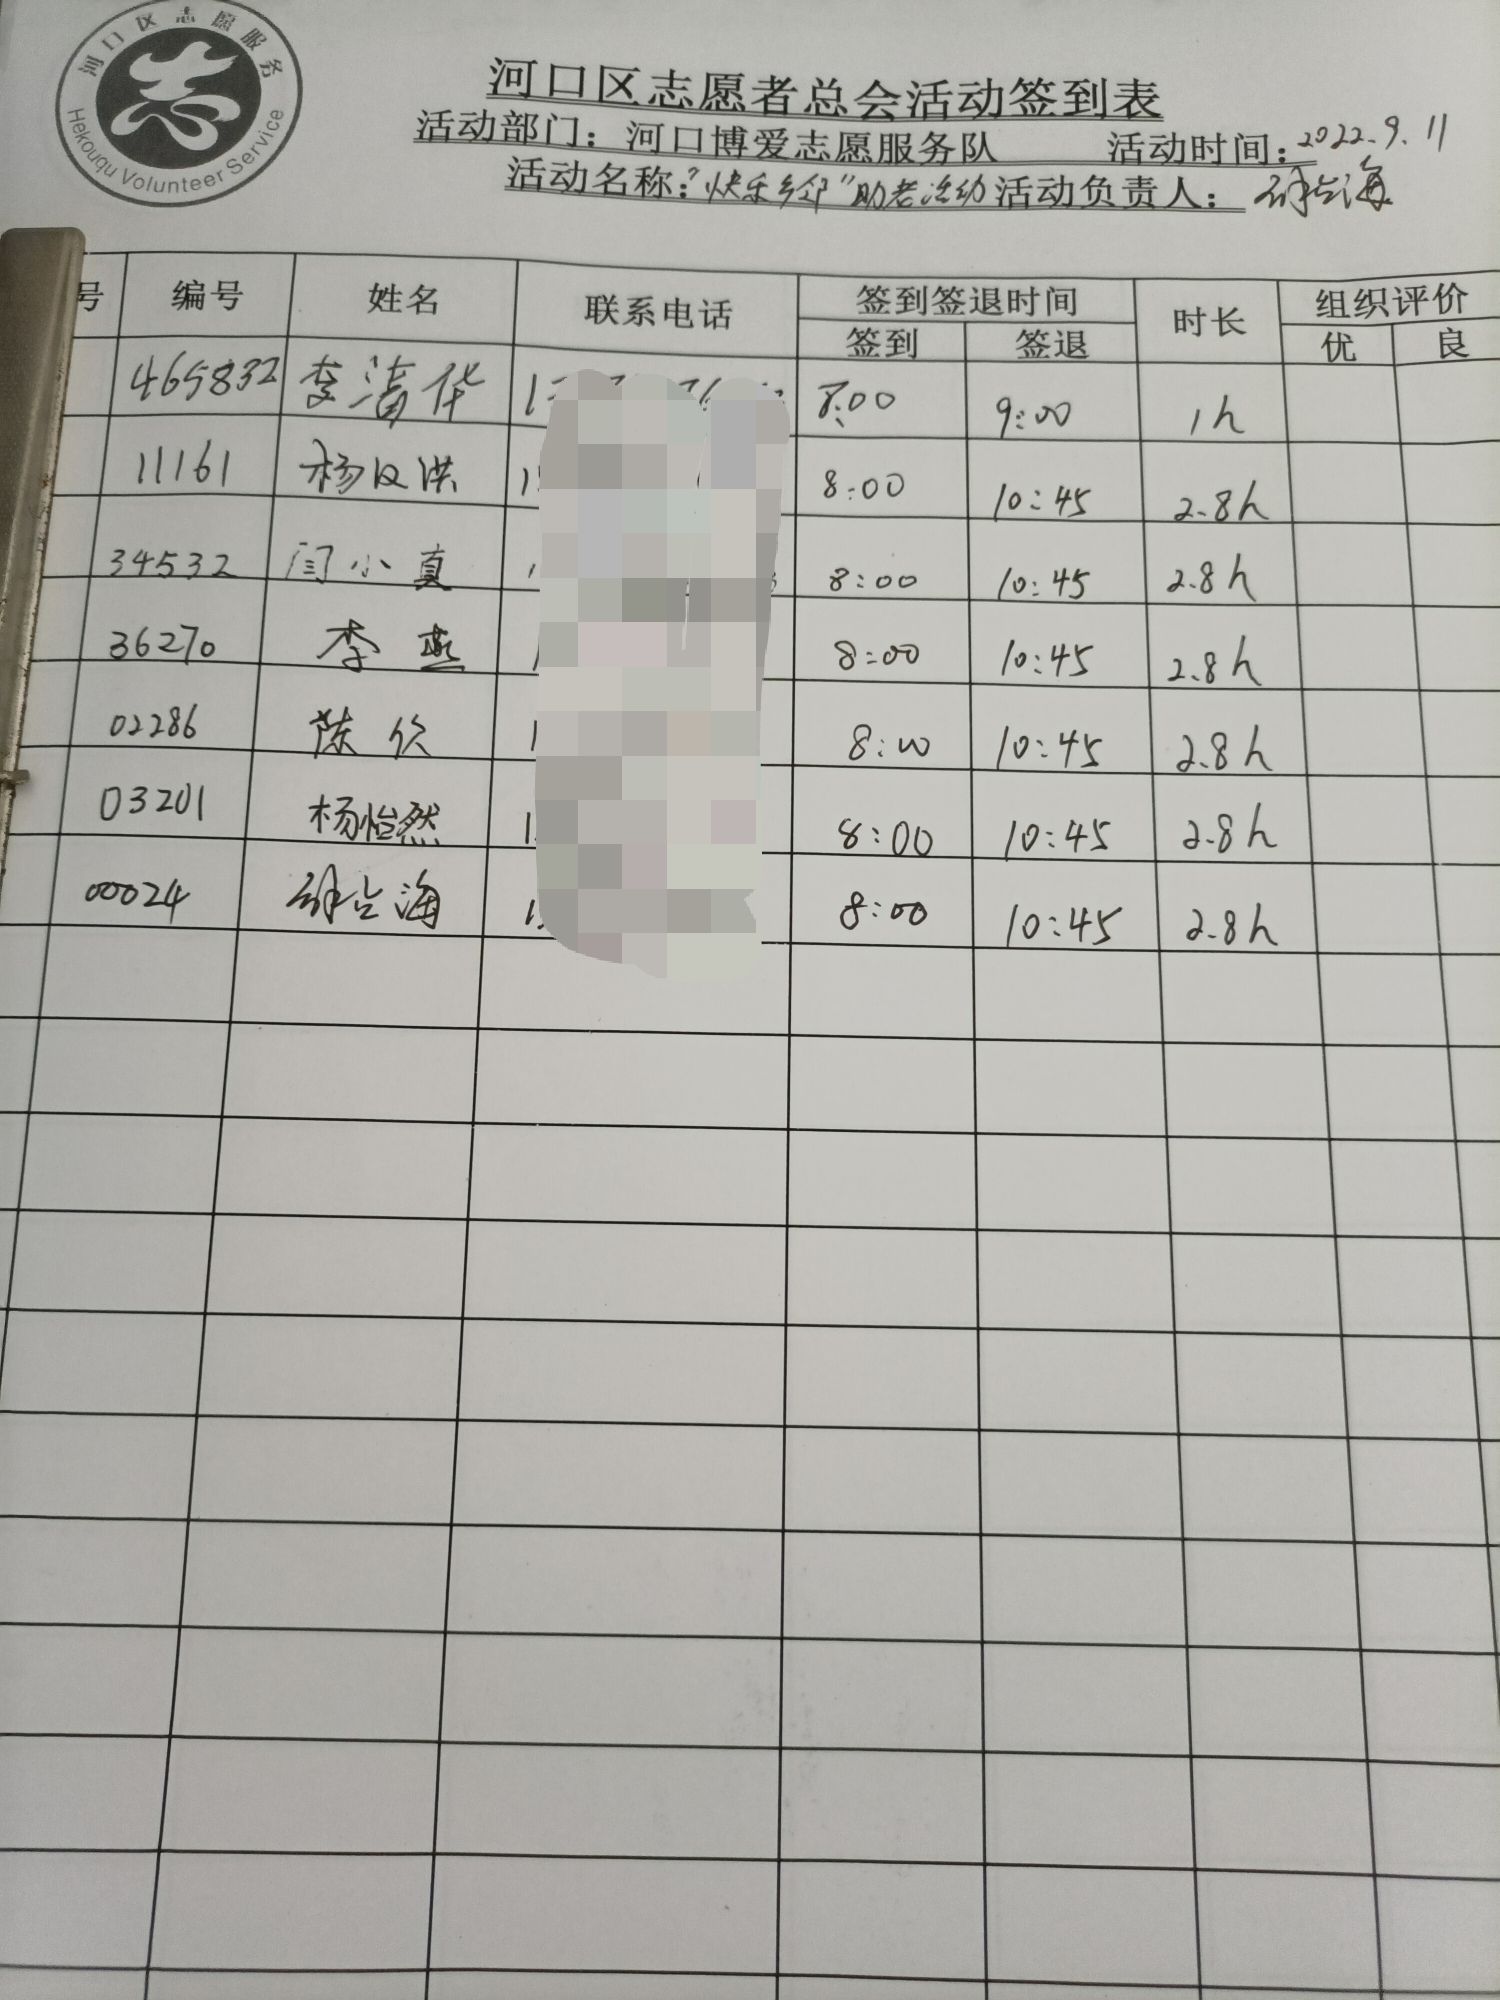 河口区志愿服务
Hekouqu Volunteer Service
河口区志愿者总会活动签到表
活动部门：河口博爱志愿服务队 活动时间：2022.9.11
活动名称："快乐乡邻"助老活动 活动负责人：
号 编号 姓名 联系电话 签到签退时间 时长 组织评价
签到 签退 优 良
465832 李清华 8:00 9:00 1h
11161 杨汉洪 8:00 10:45 2.8h
34532 闫小真 8:00 10:45 2.8h
36270 李燕 8:00 10:45 2.8h
02286 陈 8:00 10:45 2.8h
03201 杨怡然 8:00 10:45 2.8h
00024 8:00 10:45 2.8h